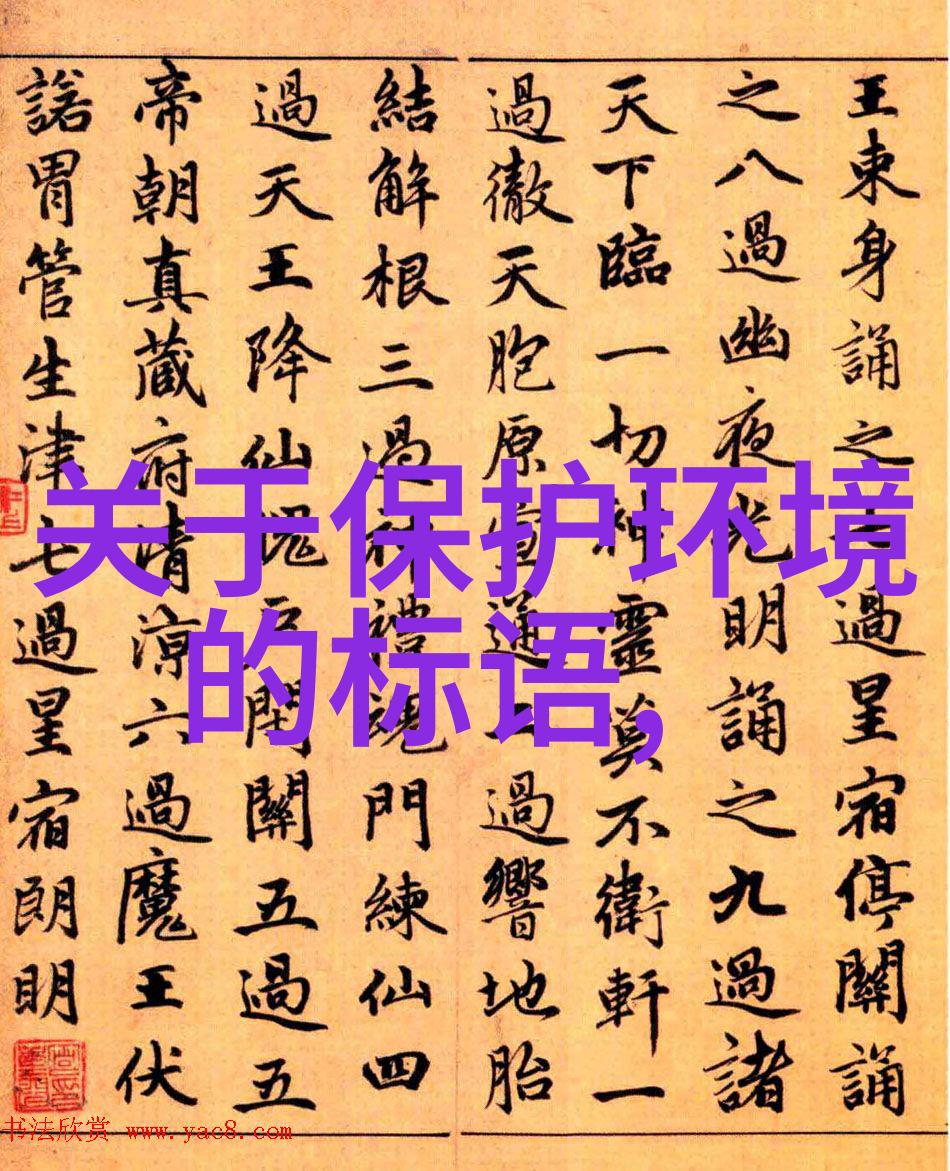 王東身誦之七過星宿停關誦
之八過幽夜光明誦之九過諸
天下臨一切神靈莫不衛軒一
過徹天胞原宣通二過響地胎
結解根三過神禮魂門練仙四
過天王降仙魄戶閉關五過五
帝朝真藏府清涼六過魔王伏
諾胃管生津七過星宿朗明
关于保护环境
的标语,
书法欣赏 www.yac8.com